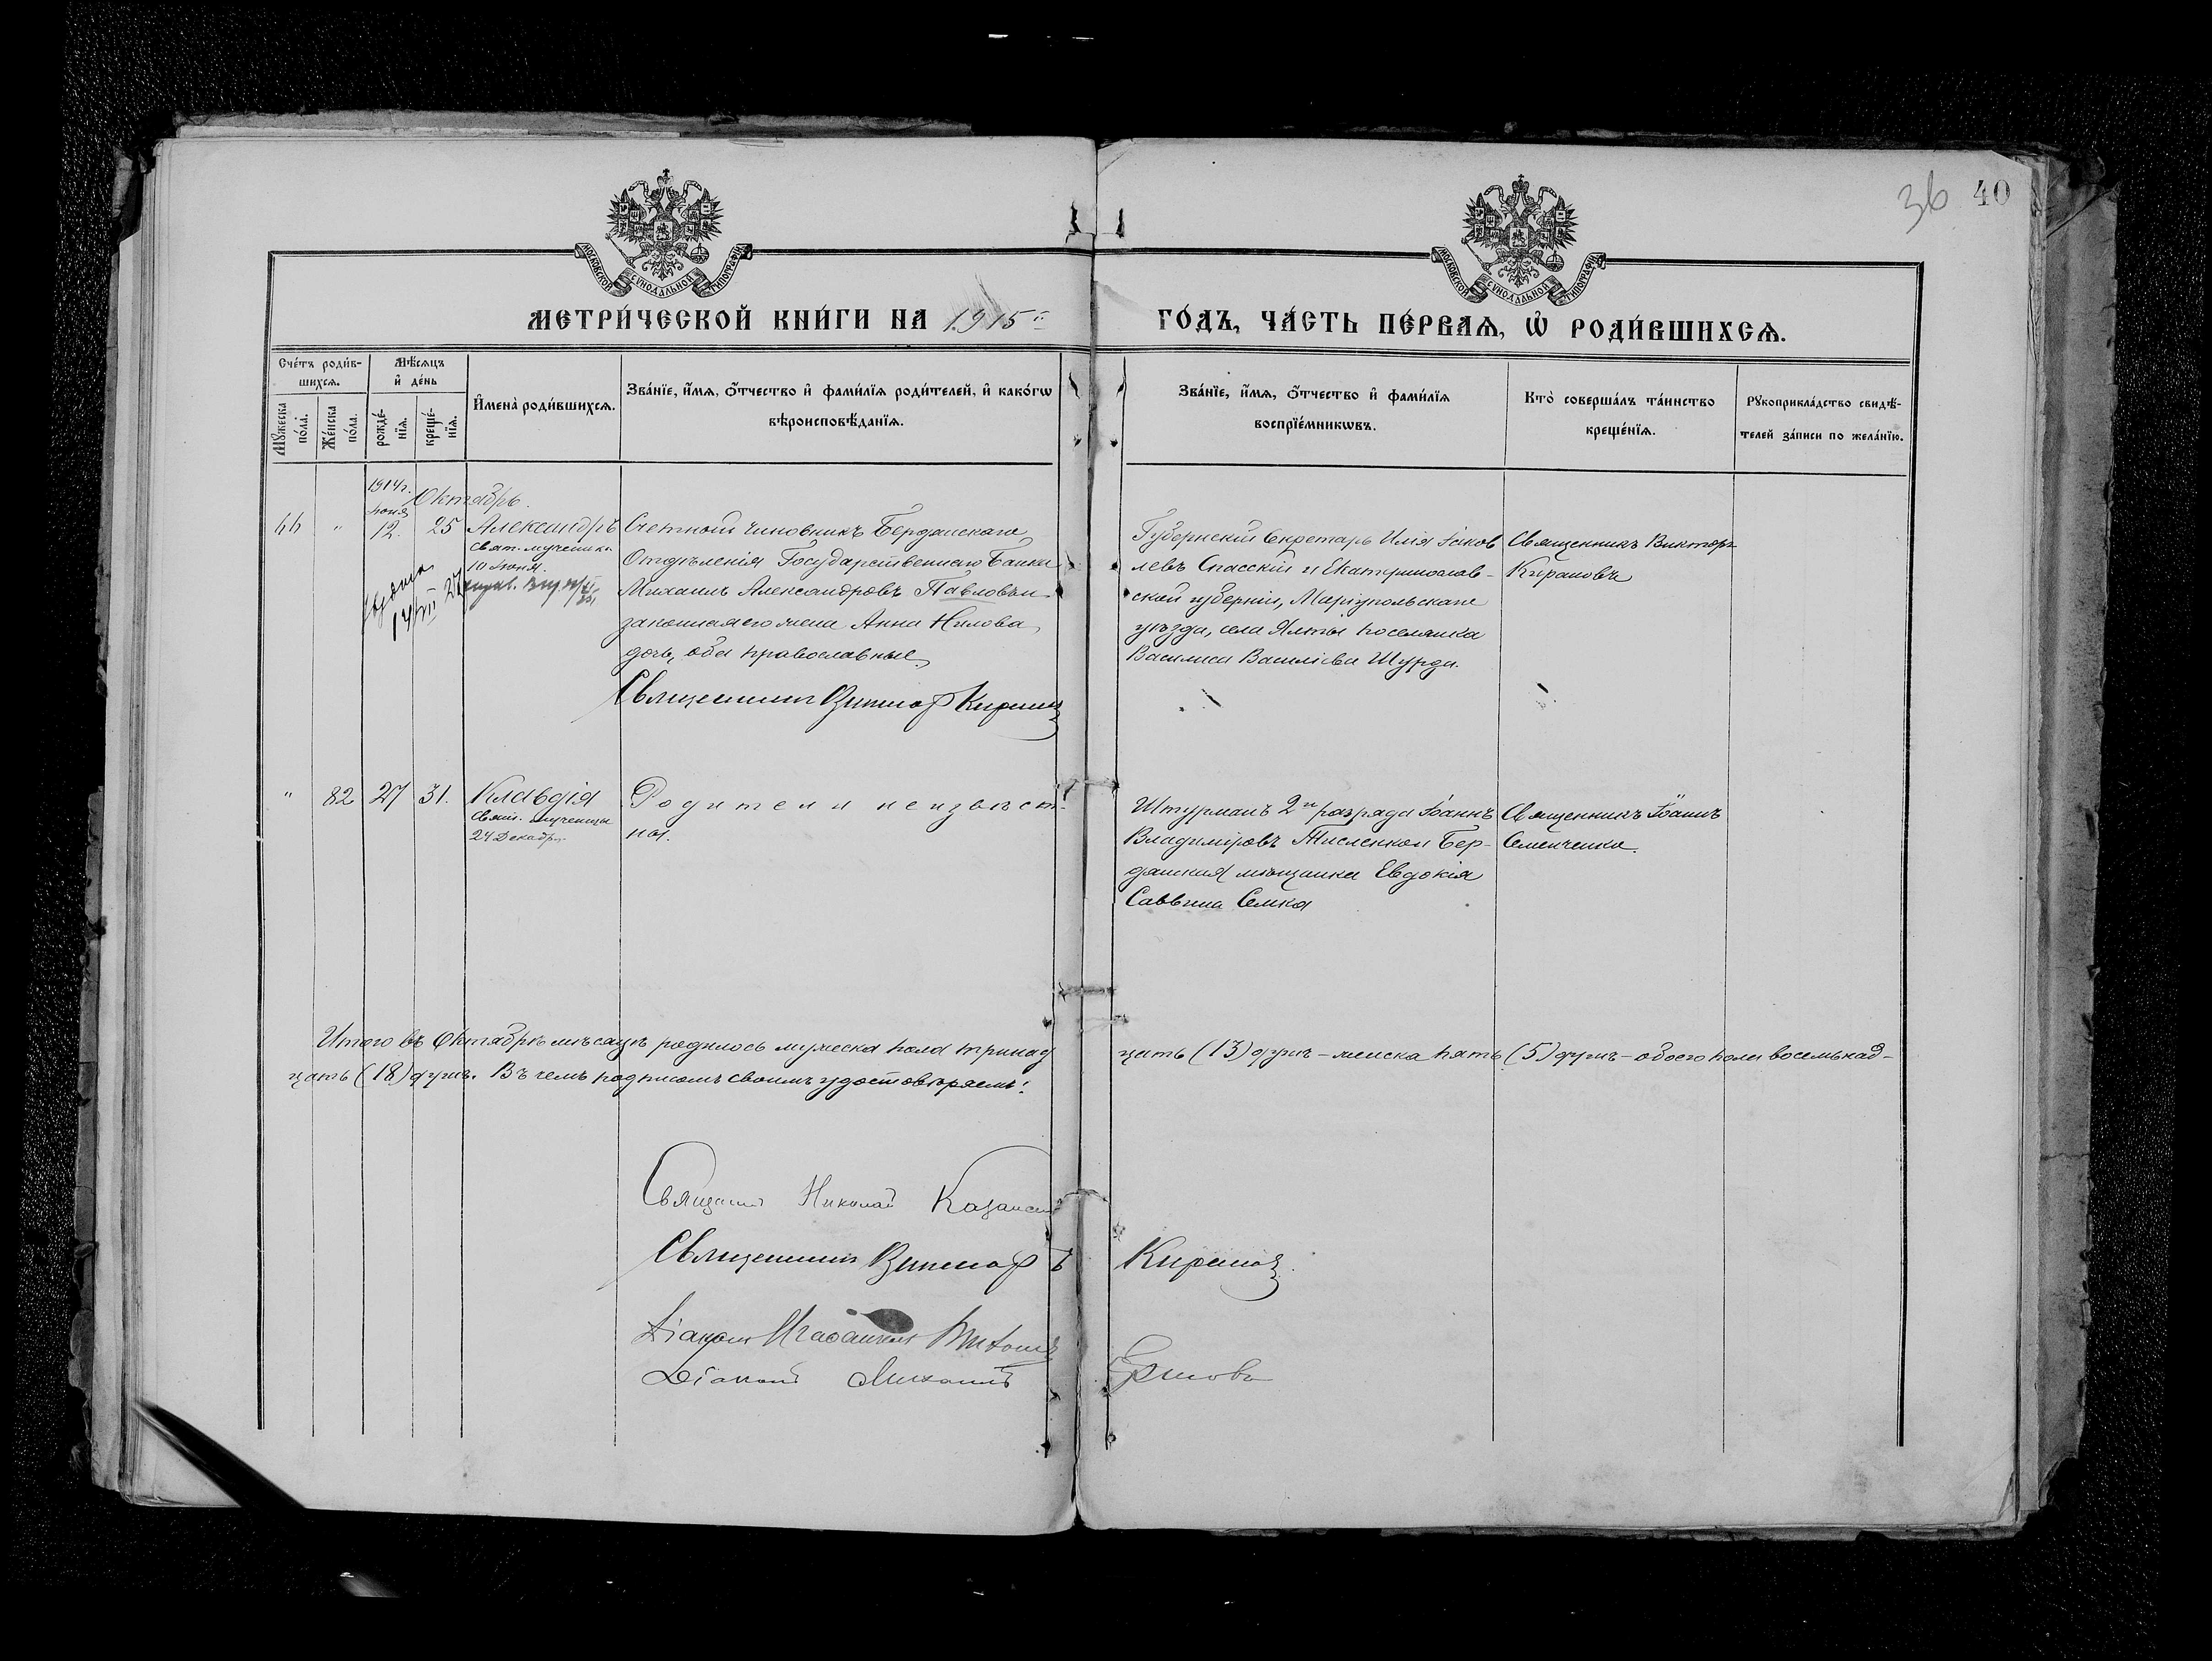 36 40
МОСКОВСКОЙ СѴНОДАЛЬНОЙ ТИПОГРАФІИ
МОСКОВСКОЙ СѴНОДАЛЬНОЙ ТИПОГРАФІИ
МЕТРИ́ЧЕСКОЙ КНИ́ГИ НА 1915 ГО́ДЪ, ЧА́СТЬ ПЕ́РВАѦ, Ѽ РОДИ́ВШИХСѦ.
Сче́тъ роди́в-
шихсѧ.
Мꙋ́жеска по́ла.
Же́нска по́ла.
Мѣ́сѧцъ и҆ де́нь
рожде́-
нїѧ.
креще́-
нїѧ.
И҆мена̀ роди́вшихсѧ.
Зва́нїе, и҆́мѧ, ѻ҆́тчество и҆ фами́лїѧ роди́телей, и҆ како́гѡ
вѣроисповѣ́данїѧ.
Зва́нїе, и҆́мѧ, ѻ҆́тчество и҆ фами́лїѧ
воспрїе́мникѡвъ.
Кто̀ соверша́лъ та́инство
креще́нїѧ.
Рꙋкоприкла́дство свидѣ́-
телей за́писи по жела́нїю.
1914 г.
Іюня
Октябрь.
66 " 12. 25 Александръ
Свят. мученика
10 Іюня.
Счетный чиновникъ Бердянскаго
Отдѣленія Государственнаго Банка
Михаилъ Александровъ Павловъ и
законная его жена Анна Нилова
дочь, оба православные
Священникъ Викторъ Кирановъ
Губернскій Секретарь Илія Іаков
левъ Спасскій и Екатеринослав-
ской губерніи, Маріупольскаго
уѣзда, села Ялты поселянка
Василиса Василіева Шурда.
Священникъ Викторъ
Кирановъ
" 82 27 31. Клавдія
Свят. мученицы
24 Декабр.
Родители неизвѣст-
ны.
Штурманъ 2го разряда Іоаннъ
Владиміровъ Тисленко и Бер-
дянская мѣщанка Евдокія
Саввина Семка
Священникъ Іоаннъ
Семенченко.
Итого въ Октябрѣ мѣсяцѣ родилось мужеска пола тринад
цать (13) душъ – женска пять (5) душъ – обоего пола восемьнад-
цать (18) душъ. Въ чемъ подписомъ своимъ удостовѣряемъ:
Священникъ Николай Казанскій
Священникъ Викторъ Кирановъ
Діаконъ
Діаконъ Михаилъ Ершовъ